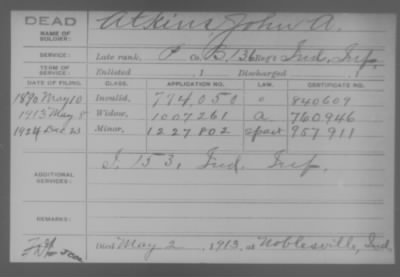 DEAD
Atkins John A.
NAME OF SOLDIER:
SERVICE: Late rank, P Co. B, 136 Reg't Ind. Inf.
TERM OF SERVICE: Enlisted , 1 Discharged
DATE OF FILING. CLASS. APPLICATION NO. LAW. CERTIFICATE NO.
1890 May 10 Invalid, 774,050 840607
1913 May 8 Widow, 1007261 a. 760946
1924 Dec 23 Minor, 1227802 957911
ADDITIONAL SERVICES: I. 153, Ind. Inf.
REMARKS:
Died May 2, 1913, at Noblesville, Ind